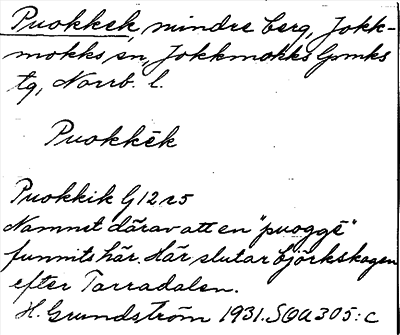 Puokkek, mindre berg, Jokk-
mokks sn, Jokkmokks lpmks
tg, Norrb. l.
Puokkēk
Puokkik G 12 r5
Namnet därav att en "puoggē"
funnits här. Här slutar björkskogen
efter Tarradalen.
H. Grundström 1931. SOA 305:c